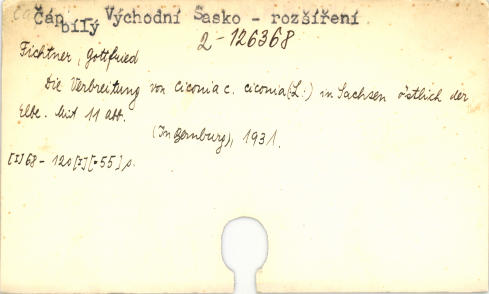 Čáp bílý Východní Sasko - rozšíření
2-126368
Fichtner, Gottfried
Die Verbreitung von Ciconia c. ciconia (L.) in Sachsen östlich der
Elbe. Mit 11 abb.
1931.
[I] 68 - 120 [I] [=55] s.